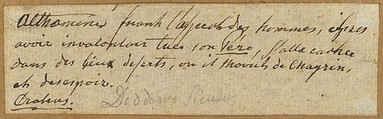 Althomène fuyant l'aspect des hommes, après
avoir involontair tué son Père, s'alla cacher
dans des lieux deserts, ou il mourut de chagrin,
et desespoir.
Diodorus Siculus